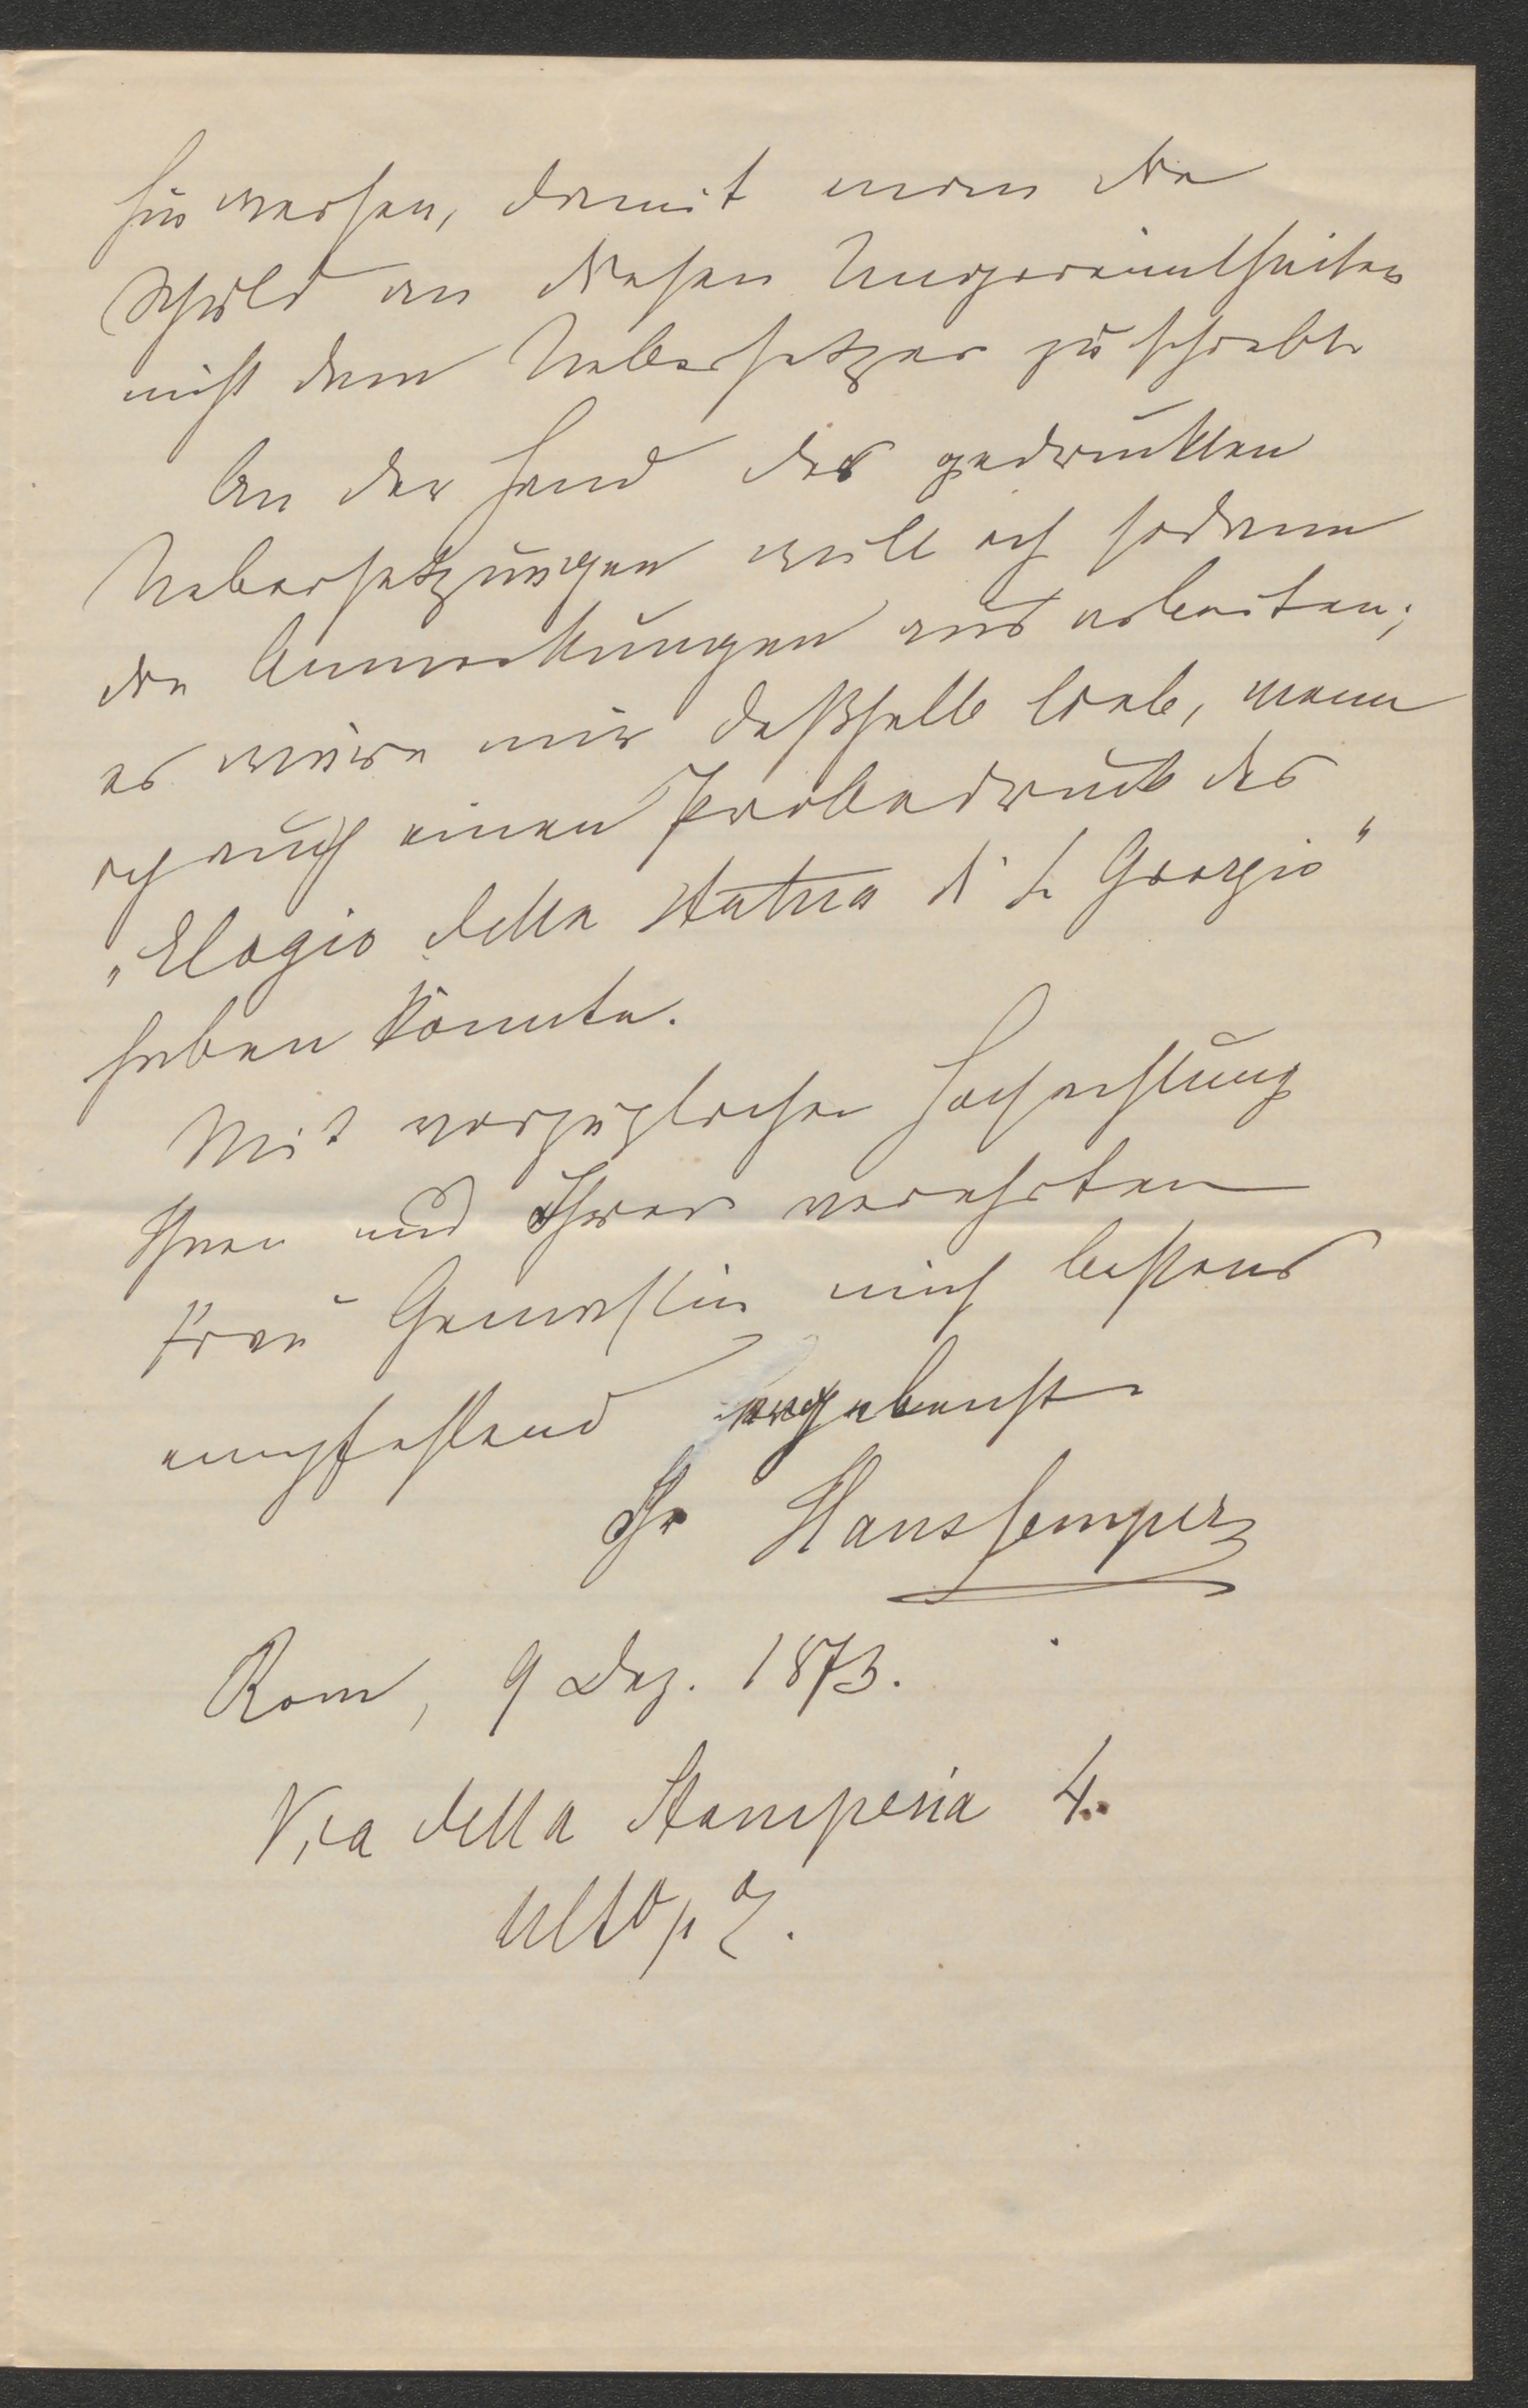 hinweisen, damit man die
Schuld an diesen Ungereimtheiten
nicht dem Uebersetzer zuschiebt
An der Hand der gedruckten
Uebersetzungen will ich sodann
die Anmerkungen ausarbeiten;
es wäre mir deßhalb lieb, wenn
ich auch einen Probedruck des
„Elogio della Statua di S. Georgio"
haben könnte.
Mit vorzüglicher Hochachtung
Ihnen und Ihrer verehrten
Frau Gemahlin mich bestens
empfehlend ergebenst
Ihr Hans Semper
Rom, 9 Dez. 1873.
Via della Stamperia 4.
ulto p.